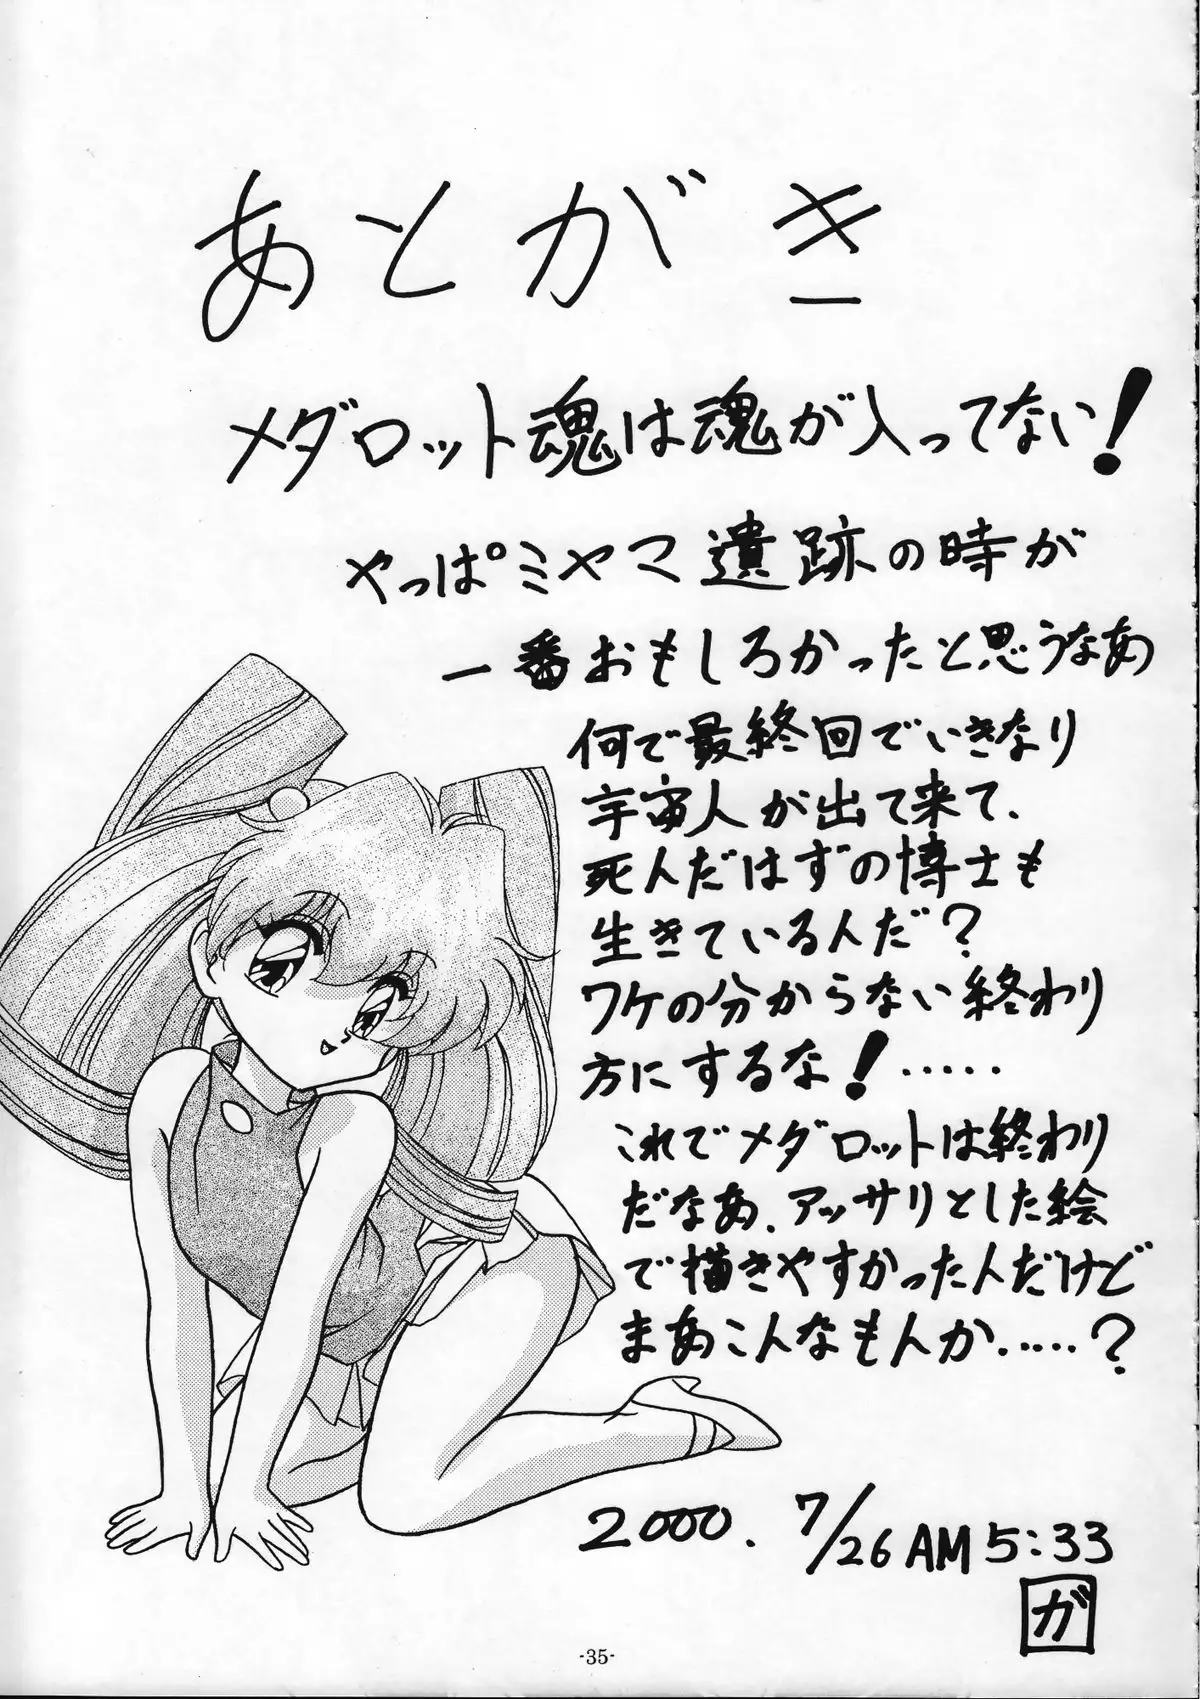 あとがき
メダロット魂は魂が入ってない!
やっぱミヤマ遺跡の時が
一番おもしろかったと思うなあ
何で最終回でいきなり
宇宙人が出て来て、
死んだはずの博士も
生きている人だ?
ワケの分からない終わり
方にするな!‥‥‥
これでメダロットは終わり
だなあ、アッサリとした絵
で描きやすかった人だけど
まあこんなもんか‥‥‥?
2000. 7/26 AM 5:33
ガ
-35-